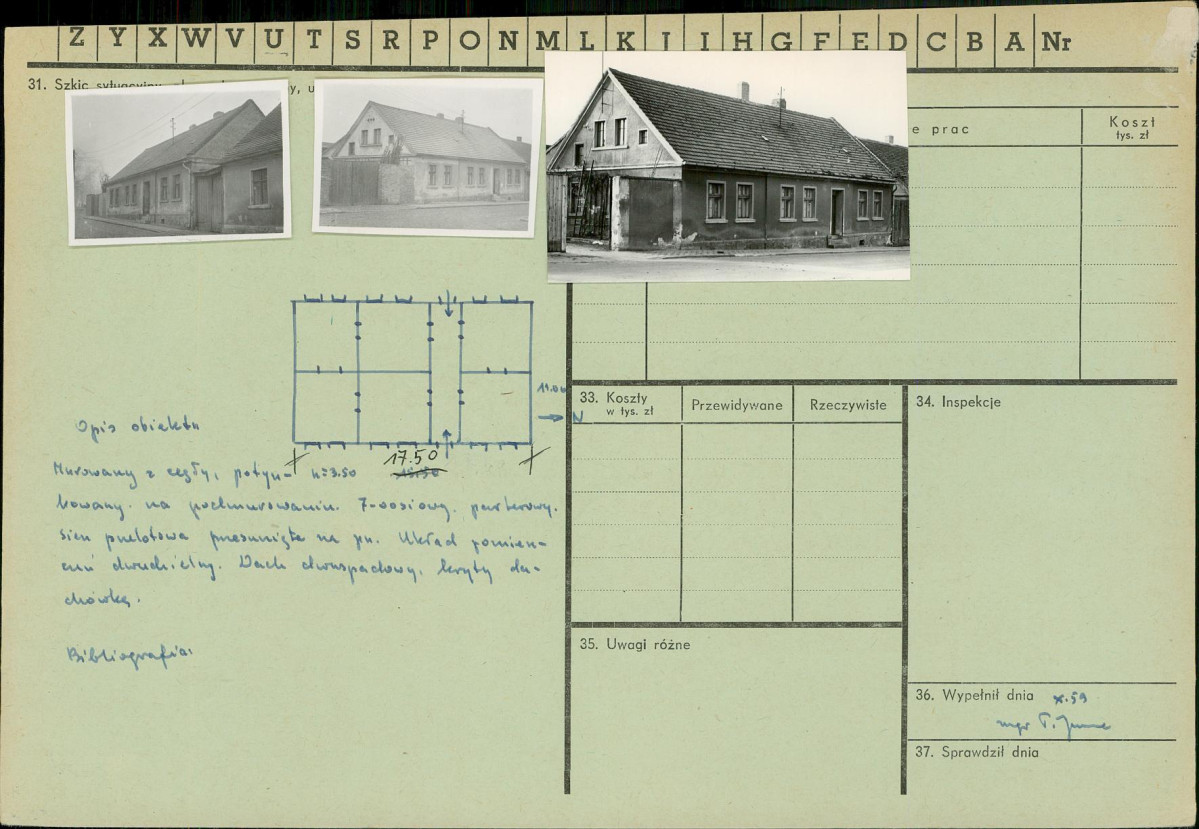 Z Y X W V U T S R P O N M L K J I H G F E D C B A Nr
31. Szkic sytuacyjny, y, u
e prac
Koszt
tys. zł
11.00
N
17.50
15.50
h=3.50
Opis obiektu
Murowany z cegły, potyn-
kowany. na podmurowaniu. 7-osiowy. parterowy.
sień przelotowa przesunięta na pn. Układ pomiesz-
czeń dwudzielny. Dach dwuspadowy, kryty da-
chówką.
Bibliografia:
33. Koszty
w tys. zł
Przewidywane
Rzeczywiste
34. Inspekcje
35. Uwagi różne
36. Wypełnił dnia x.59
mgr T.
37. Sprawdził dnia